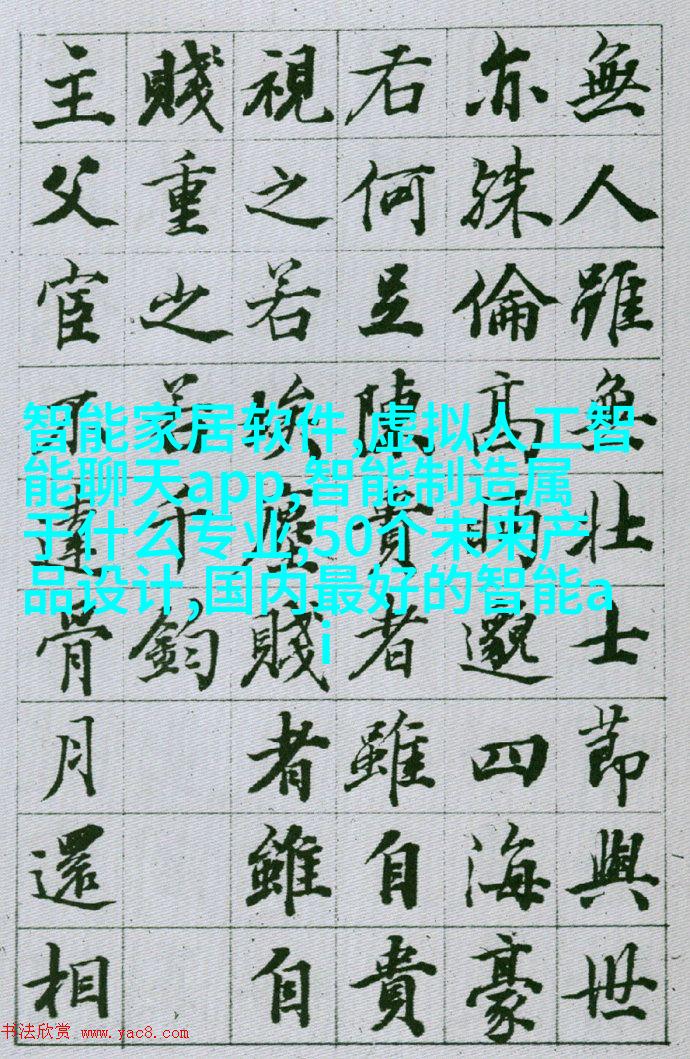 無人雖無壯士節與世
亦殊倫高眄邈四海豪
右何足陳貴者雖自貴
視之若埃塵賤者雖自
賤重之若千鈞
主父宦不達骨月還相
智能家居软件,虚拟人工智
能聊天app,智能制造属
于什么专业,50个未来产
品设计,国内最好的智能a
i
书法欣赏 www.yac8.com